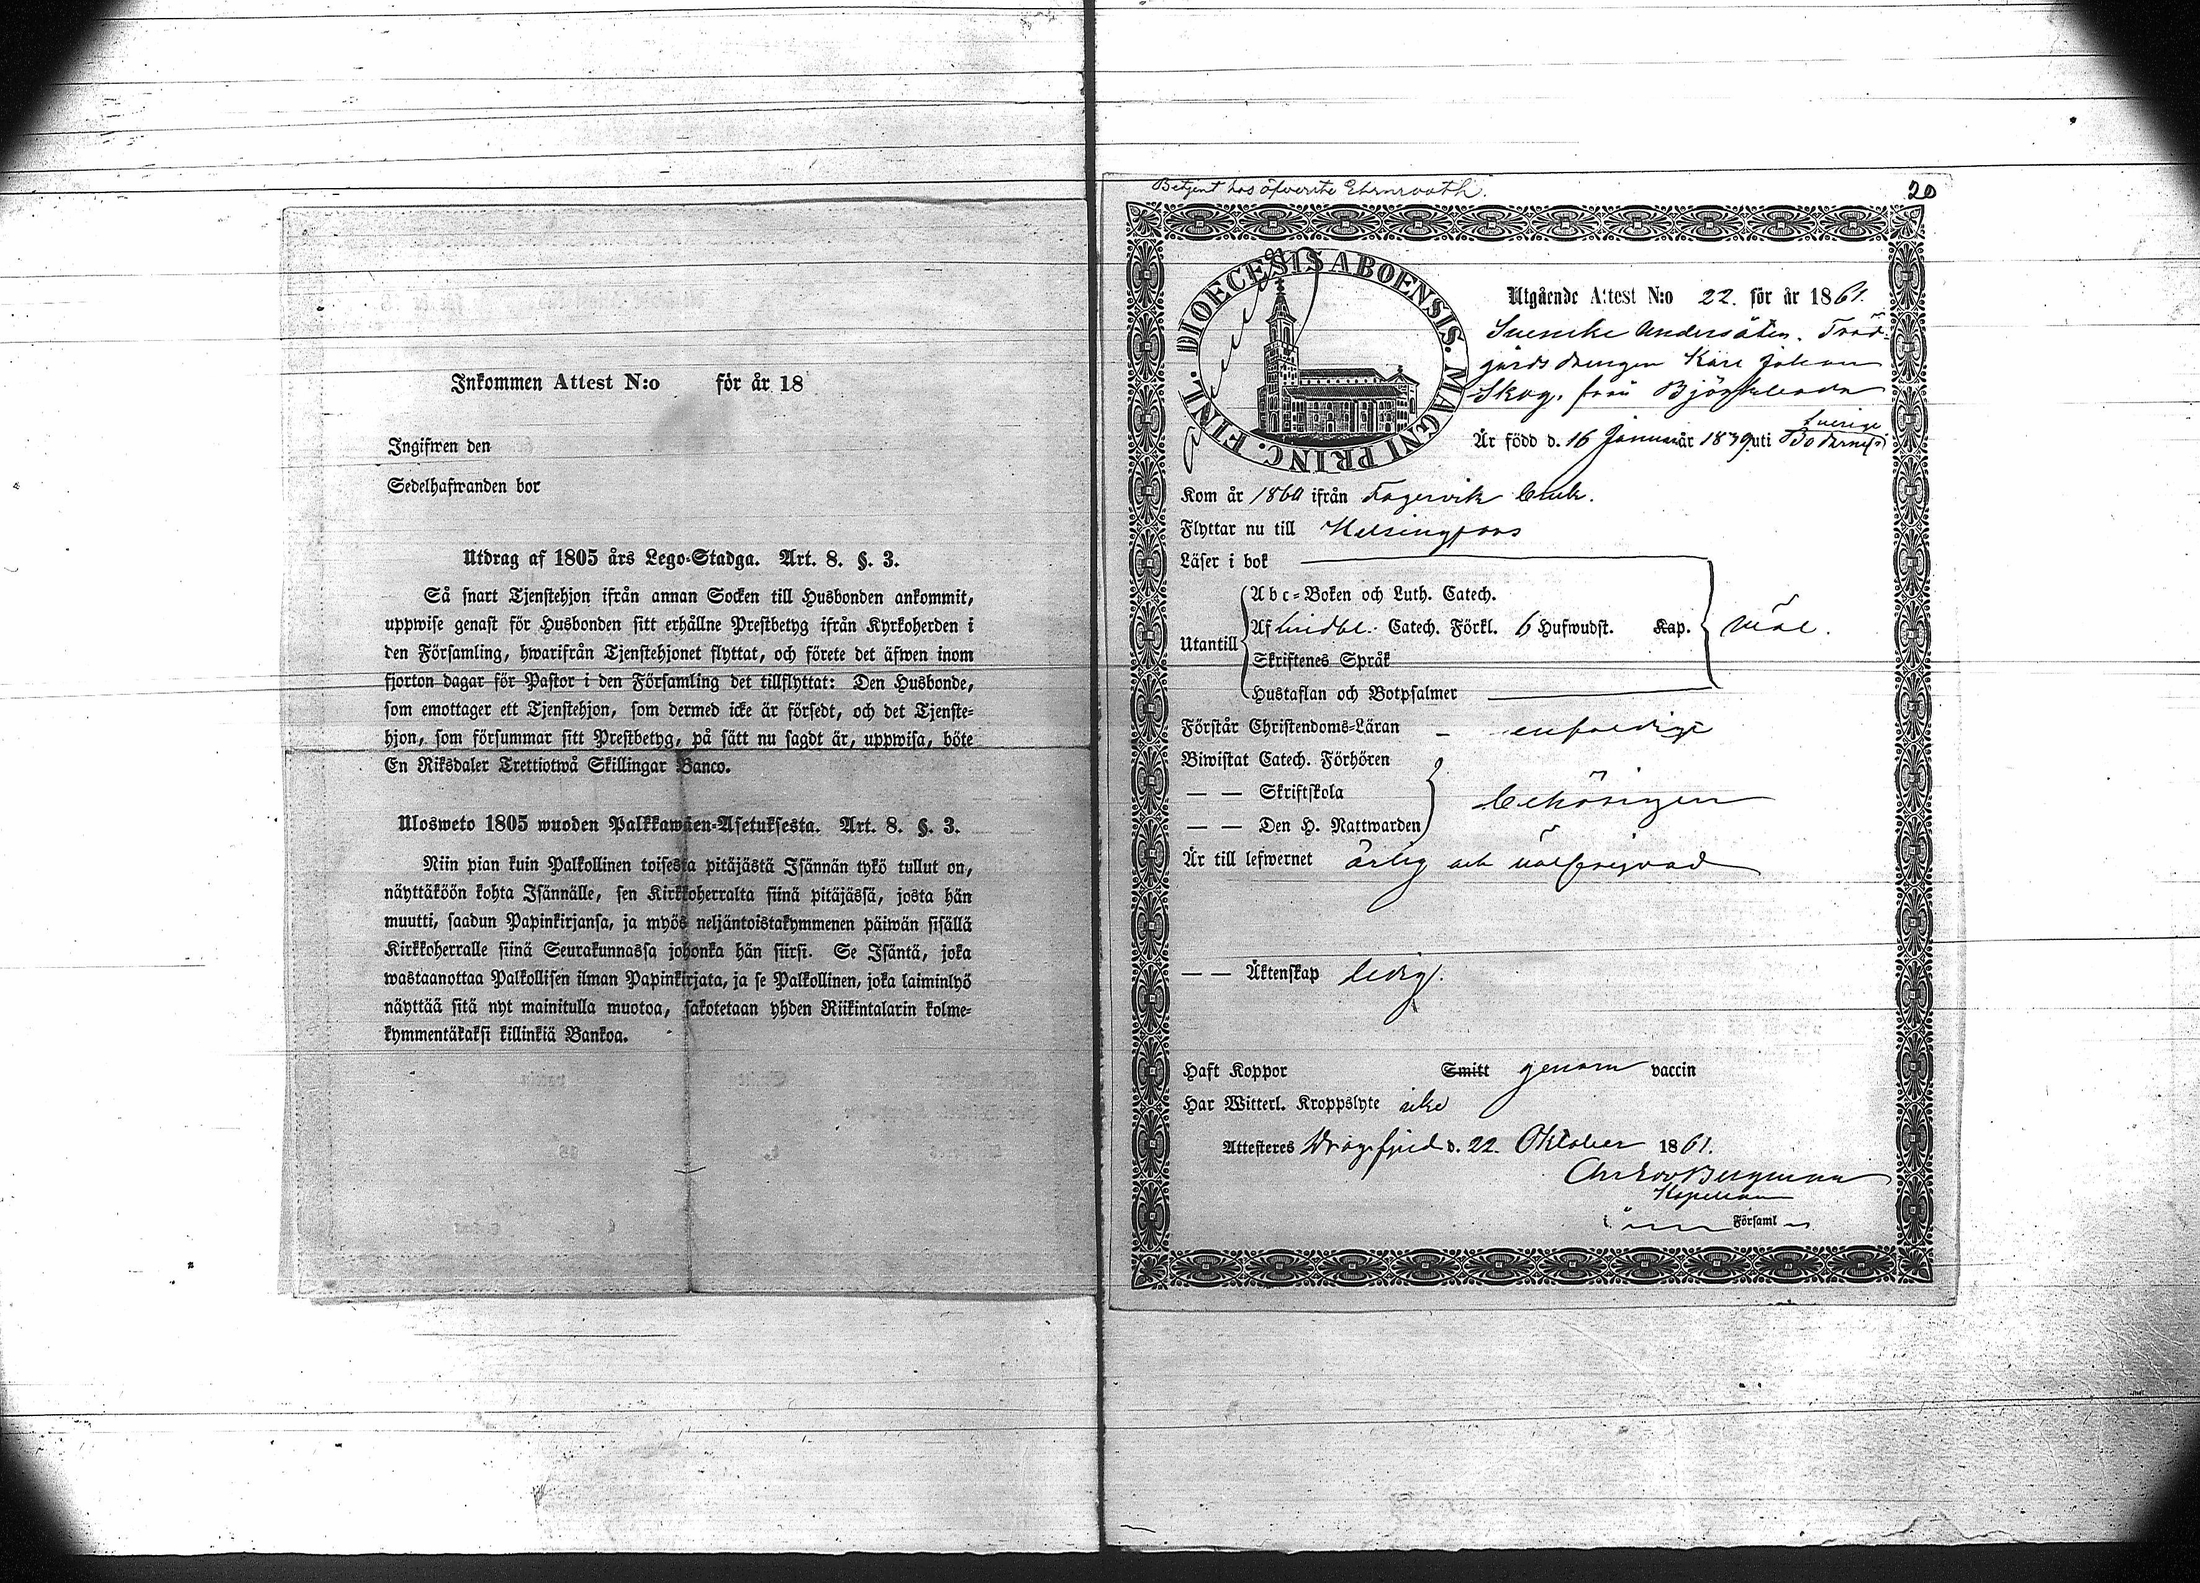 Inkommen Attest N:o för år 18
Ingifwen den
Sedelhafwanden bor
Utdrag af 1805 års Lego-Stadga. Art. 8. §. 3.
Så snart Tjenstehjon ifrån annan Socken till Husbonden ankommit,
uppwise genast för Husbonden sitt erhållne Prestbetyg ifrån Kyrkoherden i
den Församling, hwarifrån Tjenstehjonet flyttat, och förete det äfwen inom
fjorton dagar för Pastor i den Församling det tillflyttat: Den Husbonde,
som emottager ett Tjenstehjon, som dermed icke är försedt, och det Tjenste-
hjon, som försummar sitt Prestbetyg, på sätt nu sagdt är, uppwisa, böte
En Riksdaler Trettiotwå Skillingar Banco.
Ulosweto 1805 wuoden Palkkawäen-Asetuksesta. Art. 8. §. 3.
Niin pian kuin Palkollinen toisesta pitäjästä Isännän tykö tullut on,
näyttäköön kohta Isännälle, sen Kirkkoherralta siinä pitäjässä, josta hän
muutti, saadun Papinkirjansa, ja myös neljäntoistakymmenen päiwän sisällä
Kirkkoherralle siinä Seurakunnassa johonka hän siirsi. Se Isäntä, joka
wastaanottaa Palkollisen ilman Papinkirjata, ja se Palkollinen, joka laiminlyö
näyttää sitä nyt mainitulla muotoa, sakotetaan yhden Riikintalarin kolme-
kymmentäkaksi killinkiä Bankoa.
Betjent hos öfverste Ehrnrooth.
20
DIOECESIS ABOENSIS. MAGNI PRINC. FINL.
Utgående Attest N:o 22. för år 1861.
Svenske Undersåten. Träd-
gårds drengen Karl Johan
Skog, från
Sverige
Är född d. 16 Januari år 1839 uti
Kom år 1860 ifrån Fagervik bruk.
Flyttar nu till Helsingfors
Läser i bok
Abc-Boken och Luth. Catech.
Utantill Af Lindbl. Catech. Förkl. 6 Hufwudst. Kap. väl.
Skriftenes Språk
Hustaflan och Botpsalmer
Förstår Christendoms-Läran - enfaldigt
Biwistat Catech. Förhören
— — Skriftskola behörigen
— — Den H. Nattwarden
Är till lefwernet ärlig och välfrejdad
— — Äktenskap ledig.
Haft Koppor Smitt genom vaccin
Har Witterl. Kroppslyte icke
Attesteres Dragsfjerd d. 22. Oktober 1861.
Bergman
Kapellan
i Församl